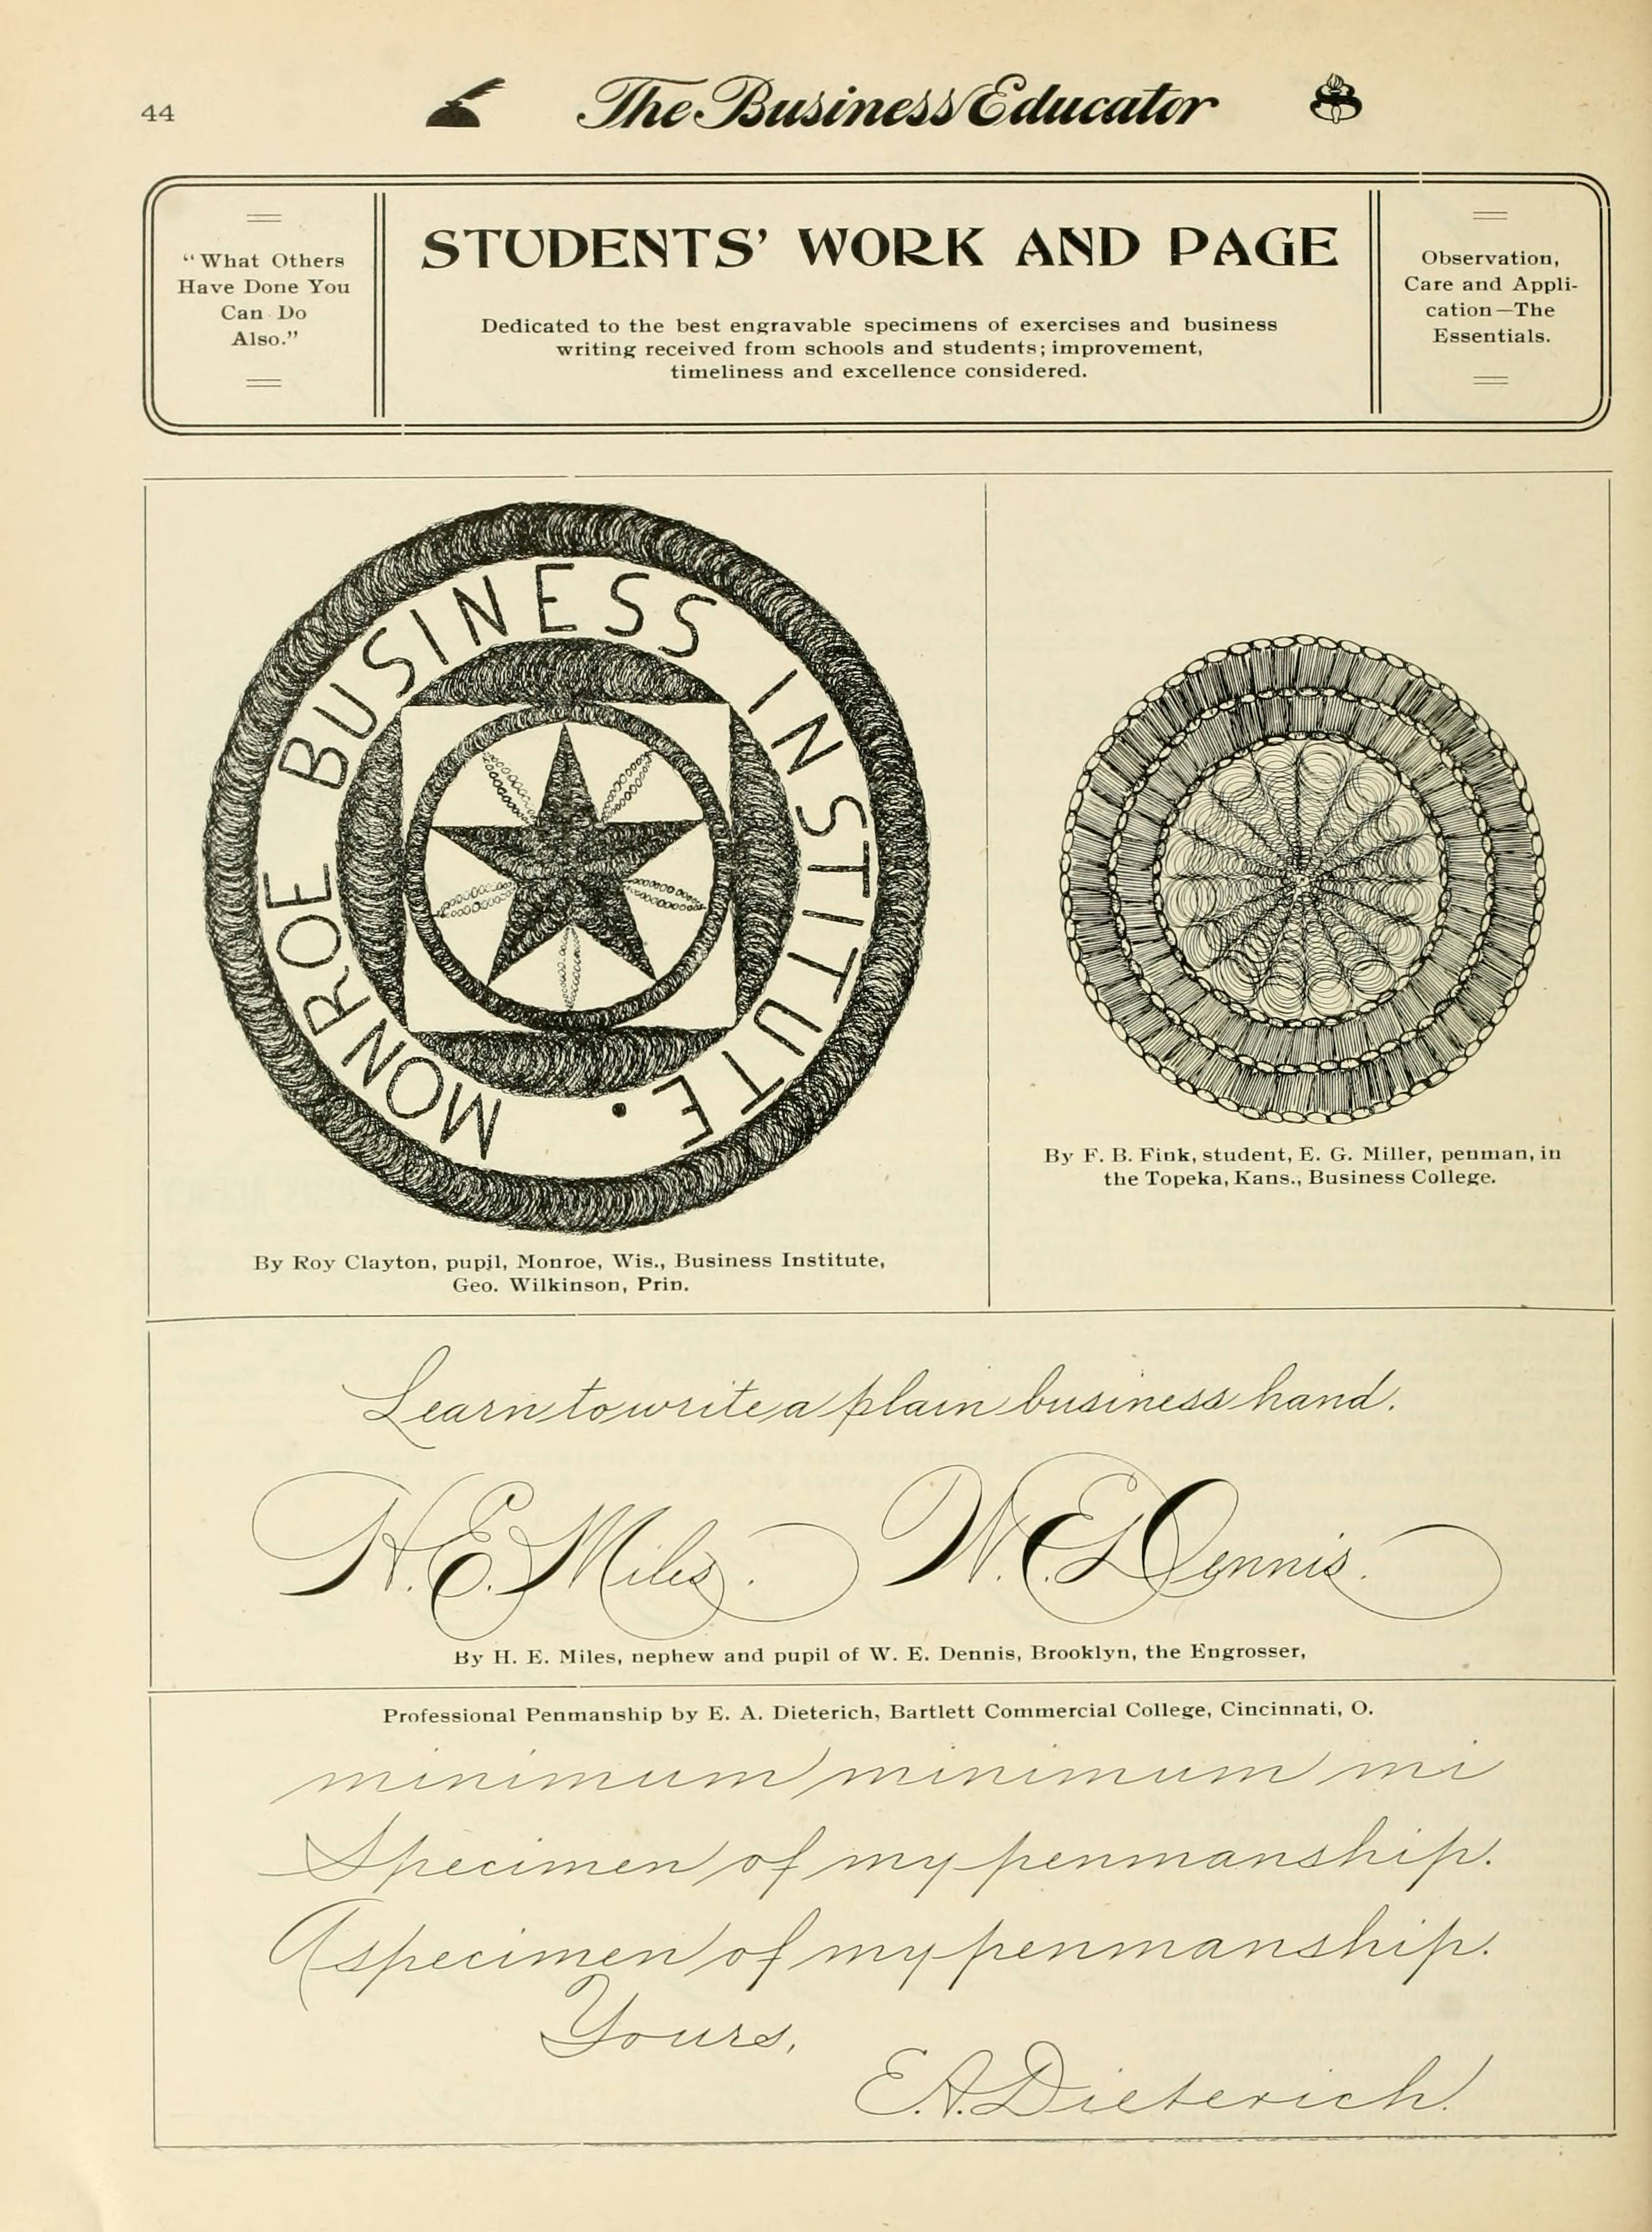 44
The Business Educator
"What Others
Have Done You
Can Do
Also."
STUDENTS' WORK AND PAGE
Dedicated to the best engravable specimens of exercises and business
writing received from schools and students; improvement,
timeliness and excellence considered.
Observation,
Care and Appli-
cation—The
Essentials.
MONROE BUSINESS INSTITUTE.
By Roy Clayton, pupil, Monroe, Wis., Business Institute,
Geo. Wilkinson, Prin.
By F. B. Fink, student, E. G. Miller, penman, in
the Topeka, Kans., Business College.
Learn to write a plain business hand.
H. E. Miles. W. E. Dennis.
By H. E. Miles, nephew and pupil of W. E. Dennis, Brooklyn, the Engrosser,
Professional Penmanship by E. A. Dieterich, Bartlett Commercial College, Cincinnati, O.
minimum minimum mi
Specimen of my penmanship.
A specimen of my penmanship.
Yours,
E. A. Dieterich.